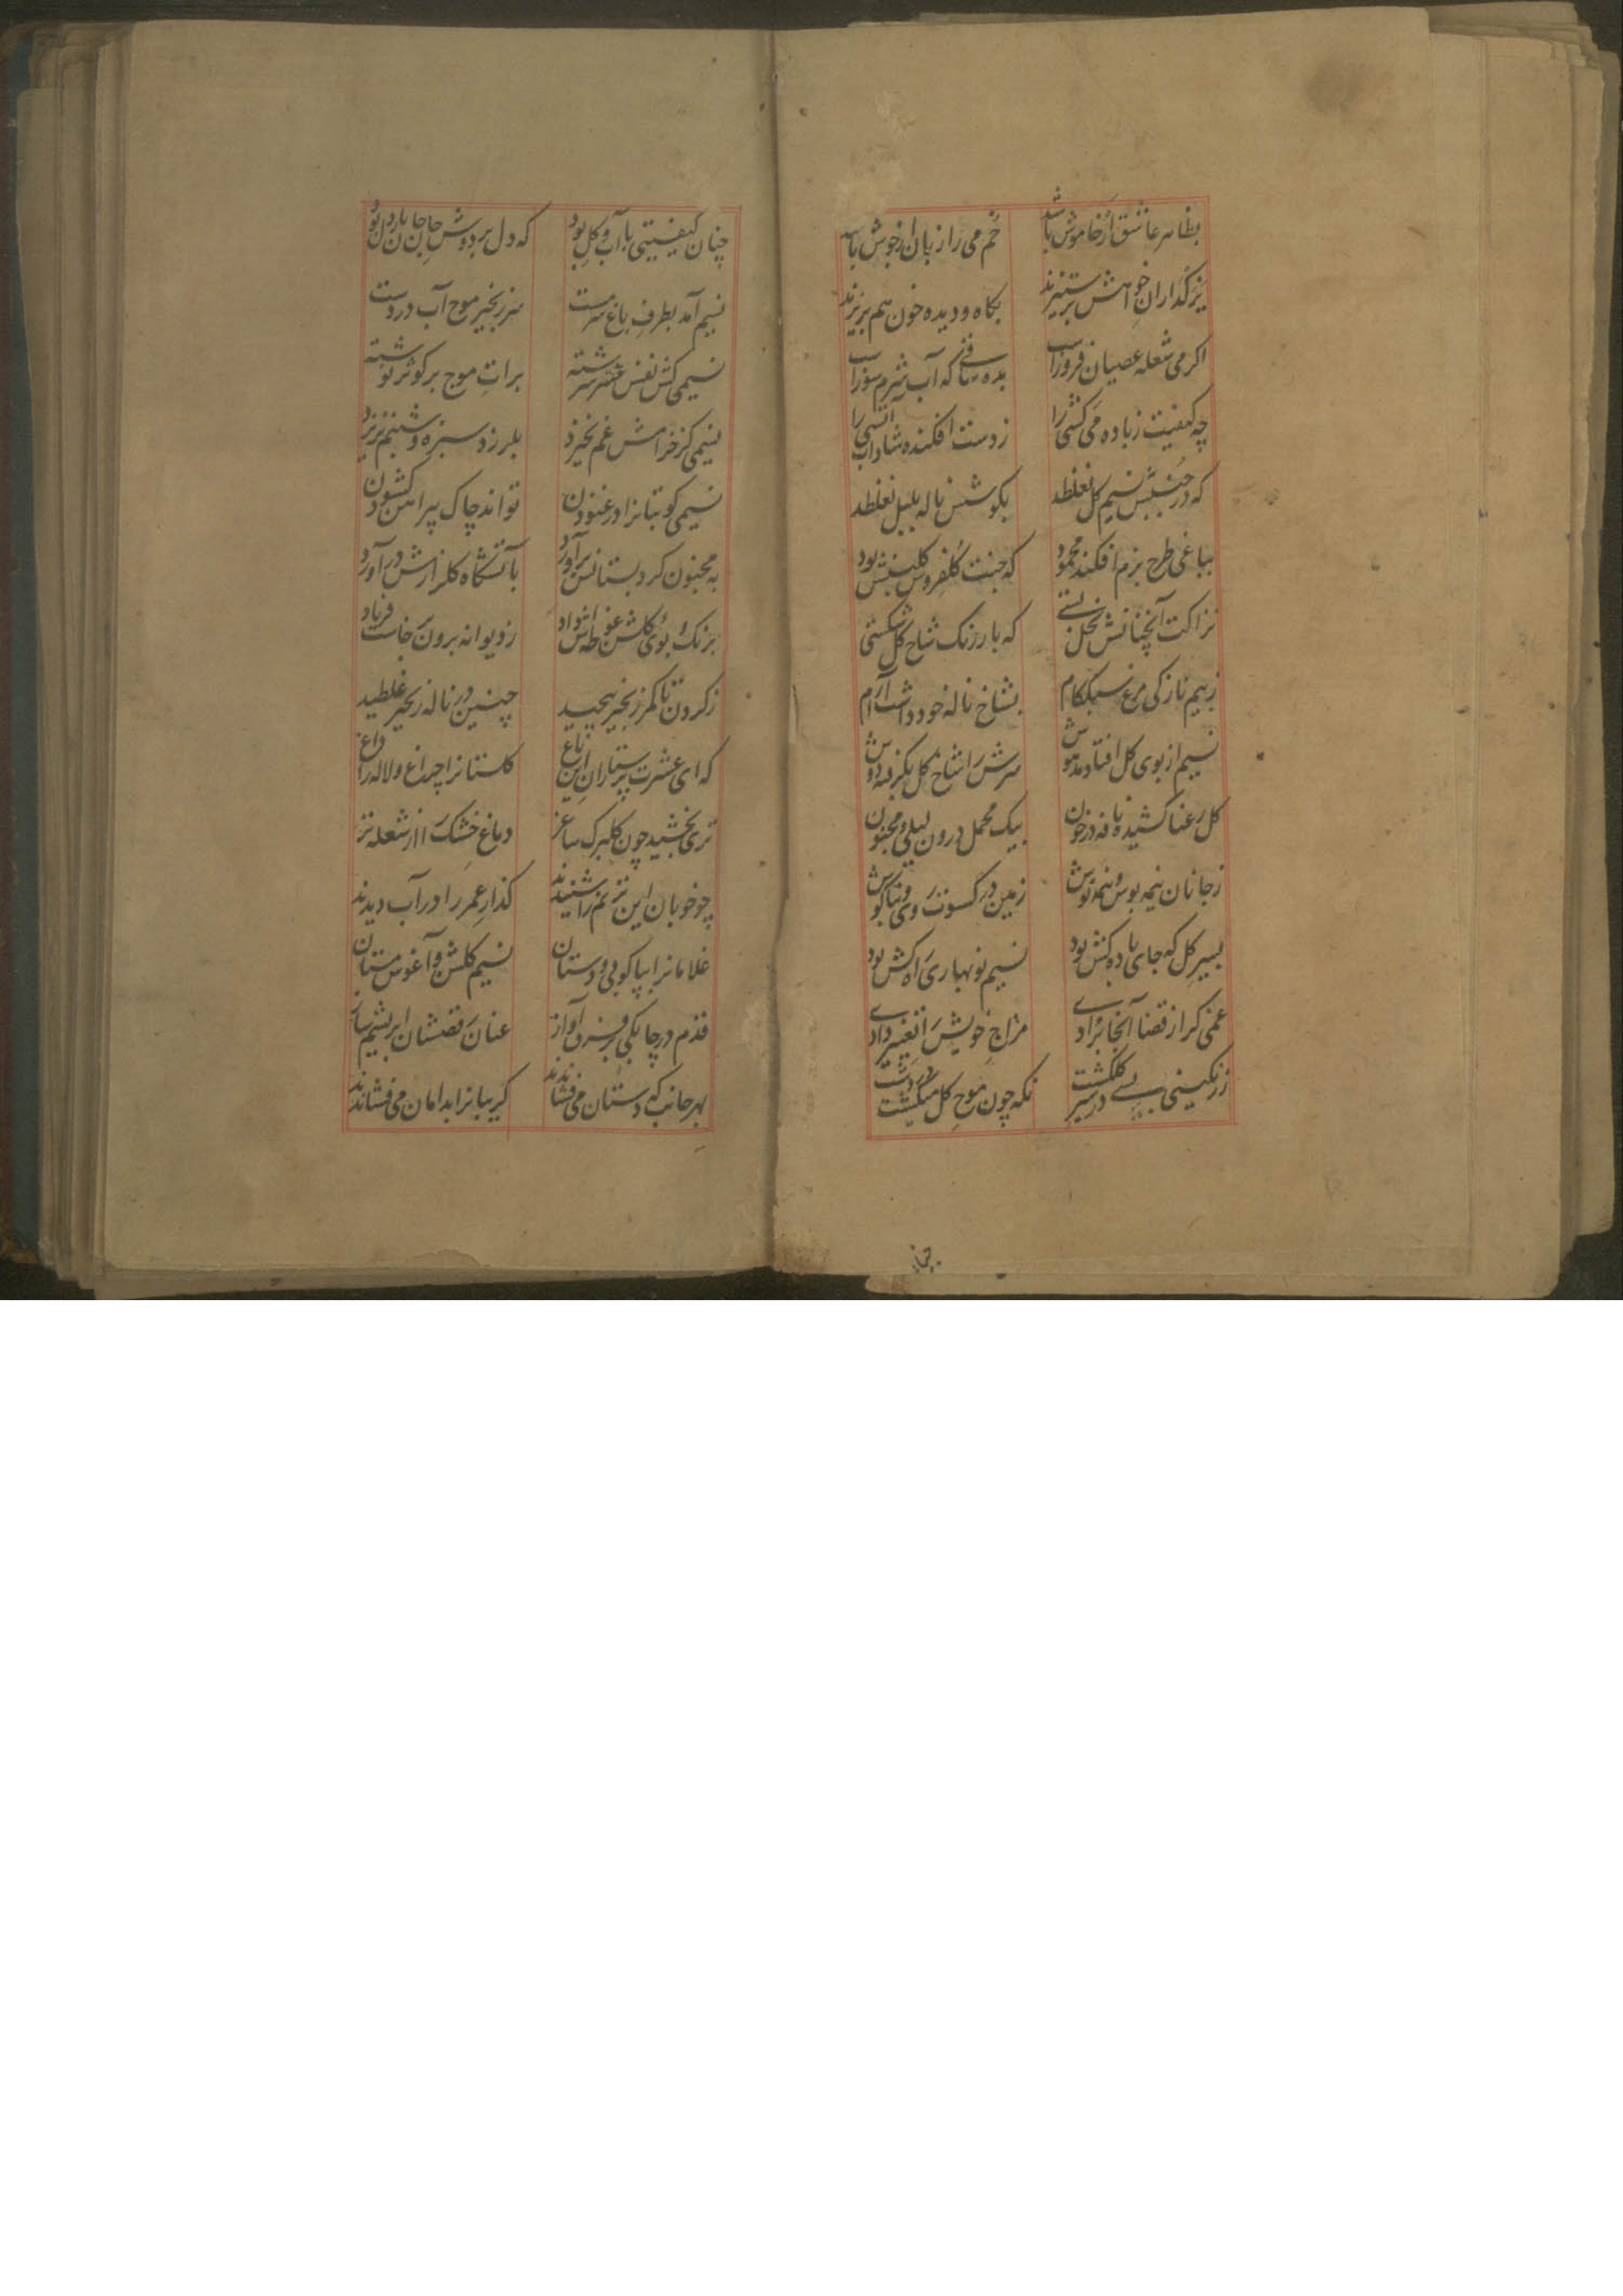 بظاهر عاشق ار خاموش باشد خم می را زبان از جوش باشد
نگاه و دیده خون هم بریزند
اگر می شعله عصیان فروز است بده ساقی که آب شرم سوز است
چه کیفیت ز باده می کشی را ز دست افکنده شاداب آتشی را
که در جنبش نسیم گل نغلطد بگوشش ناله بلبل نغلطد
بباغی طرح بزم افکند محمود که جنت گلفروش گلبنش بود
نزاکت آنچنانش نخل بستی که بار رنگ شاخ گل شکستی
ز بیم نازکی مرغ سبکگام بشاخ ناله خود داشت آرام
نسیم از بوی گل افتاده مدهوش سرش را شاخ گل بگرفته بر دوش
گل رعنا کشیده ناقه در خون بیک محمل درون لیلی و مجنون
ز جانان نیمه بوس و نیمه نوش زمین در کسوت روی و بناگوش
بسیر گل که جای باده کش بود نسیم نوبهاری راه کش بود
غمی گر از قضا آنجا فتادی مزاج خویش را تغییر دادی
ز رنگینی بسی در سیر گلگشت نگه چون موج گل میگشت
چنان
چنان کیفیتی با آب و گل بود که دل بر دوش جان جان بار دل بود
نسیم آمد بطرف باغ سرمست سر زنجیر موج آب در دست
نسیمی کش نفس عنبر سرشته برات موج بر کوثر نوشته
نسیمی کز خرامش غم نخیزد بلرزد سبزه و شبنم نریزد
نسیمی کو بتانرا در غنودن تواند چاک پیراهن گشودن
به مجنون کرد بستانش برآورد بآتشگاه گلزارش درآورد
برنگ و بوی گلشن غوطه اش داد ز دیوانه برون خاست فریاد
ز گردن تا کمر زنجیر پیچید چنین در ناله زنجیر غلطید
که ای عشرت پرستاران این باغ گلستانرا چراغ و لاله را داغ
تری بخشید چون گلبرگ ساغر دماغ خشک را از شعله تر
چو خوبان این ترنم را شنیدند گذار عمر را در آب دیدند
غلامانرا بپاکوبی و دستان نسیم گلشن و آغوش مستان
قدم در چابکی آواز عنان رقصشان ابریشم ساز
بهر جانب که دستان می فشاندند گریبانرا بدامان می فشاندند